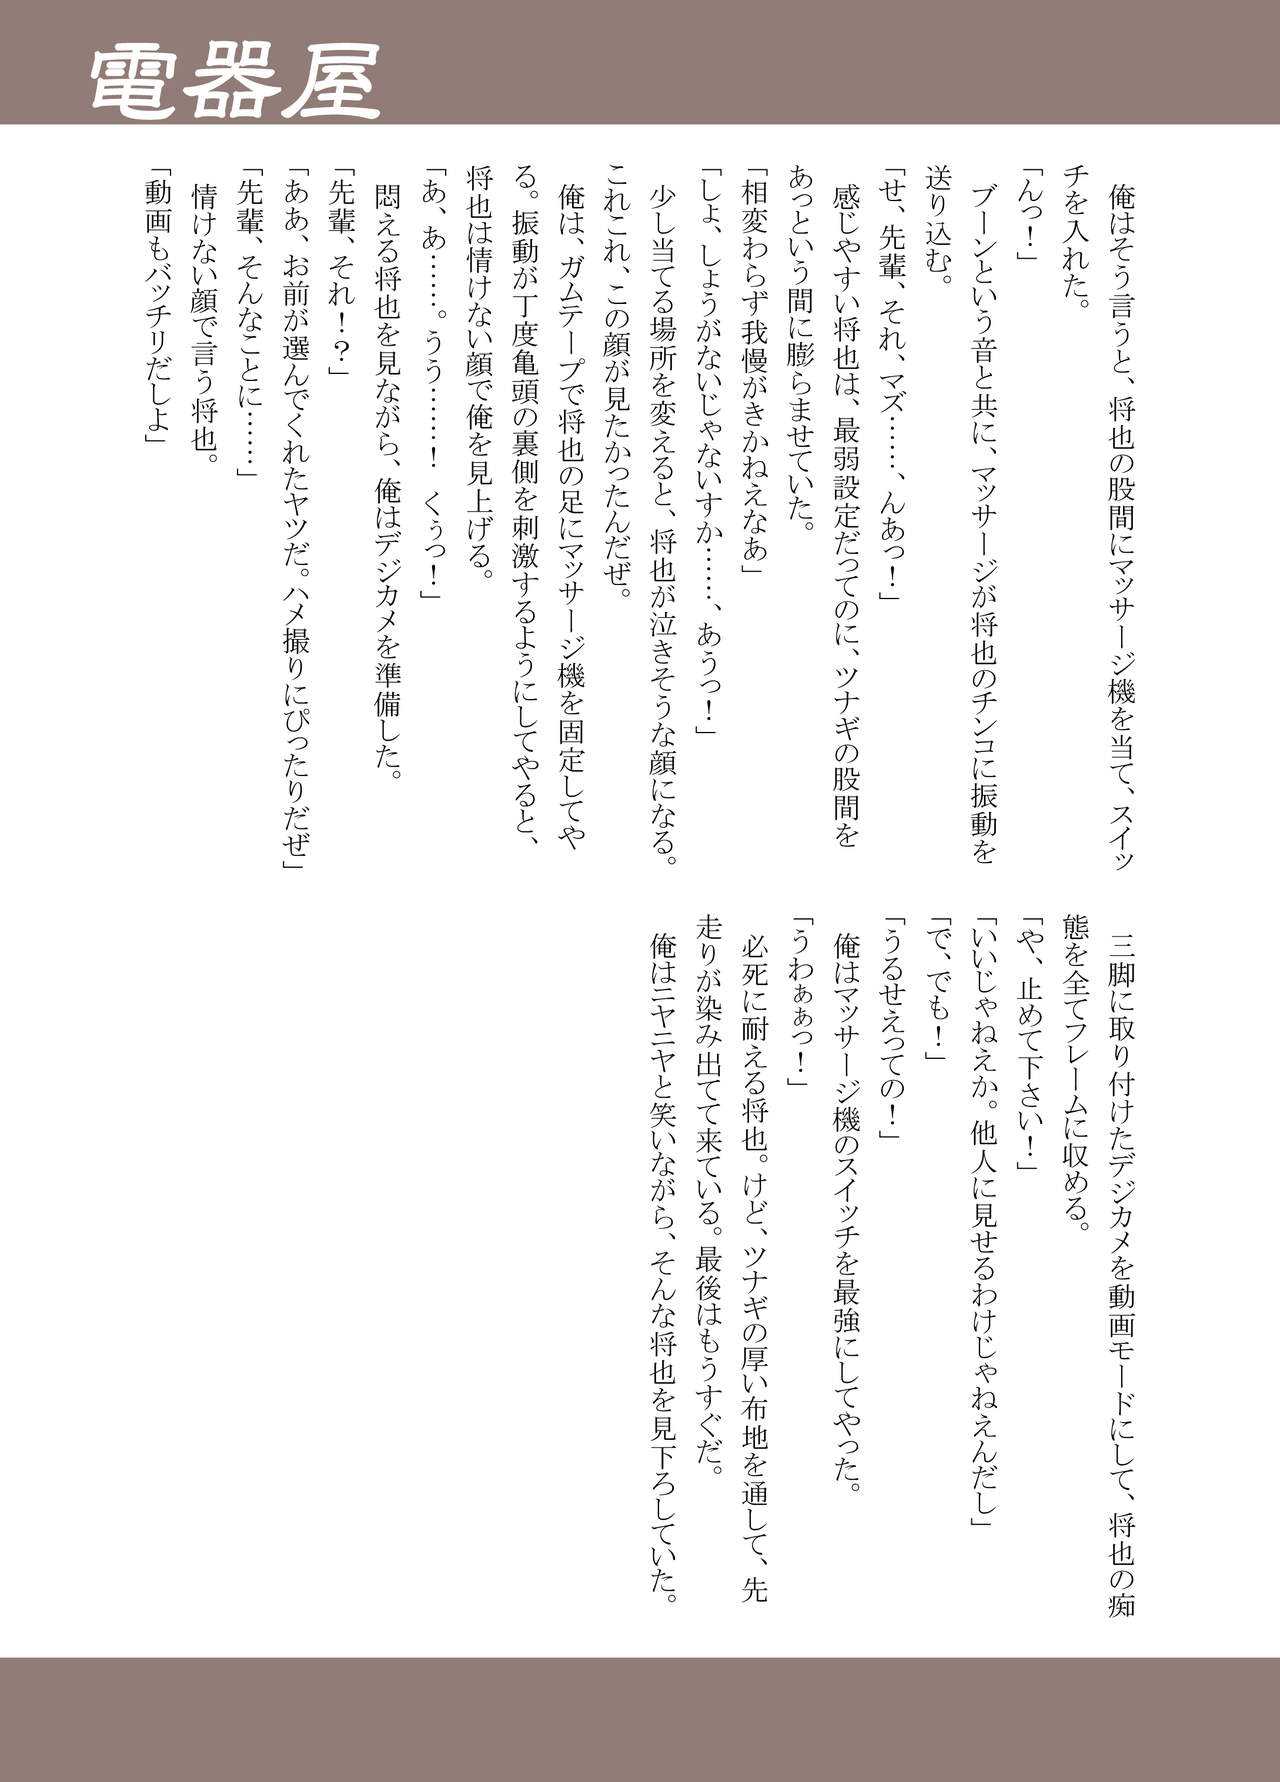 電器屋
　俺はそう言うと、将也の股間にマッサージ機を当て、スイッ
チを入れた。
「んっ！」
　ブーンという音と共に、マッサージが将也のチンコに振動を
送り込む。
「せ、先輩、それ、マズ……、んあっ！」
　感じやすい将也は、最弱設定だってのに、ツナギの股間を
あっという間に膨らませていた。
「相変わらず我慢がきかねえなあ」
「しょ、しょうがないじゃないすか……、あうっ！」
　少し当てる場所を変えると、将也が泣きそうな顔になる。
これこれ、この顔が見たかったんだぜ。
　俺は、ガムテープで将也の足にマッサージ機を固定してや
る。振動が丁度亀頭の裏側を刺激するようにしてやると、
将也は情けない顔で俺を見上げる。
「あ、あ……。うう……！　くぅっ！」
　悶える将也を見ながら、俺はデジカメを準備した。
「先輩、それ！？」
「ああ、お前が選んでくれたヤツだ。ハメ撮りにぴったりだぜ」
「先輩、そんなことに……」
　情けない顔で言う将也。
「動画もバッチリだしよ」
　三脚に取り付けたデジカメを動画モードにして、将也の痴
態を全てフレームに収める。
「や、止めて下さい！」
「いいじゃねえか。他人に見せるわけじゃねえんだし」
「で、でも！」
「うるせえっての！」
　俺はマッサージ機のスイッチを最強にしてやった。
「うわぁぁっ！」
　必死に耐える将也。けど、ツナギの厚い布地を通して、先
走りが染み出てて来ている。最後はもうすぐだ。
　俺はニヤニヤと笑いながら、そんな将也を見下ろしていた。